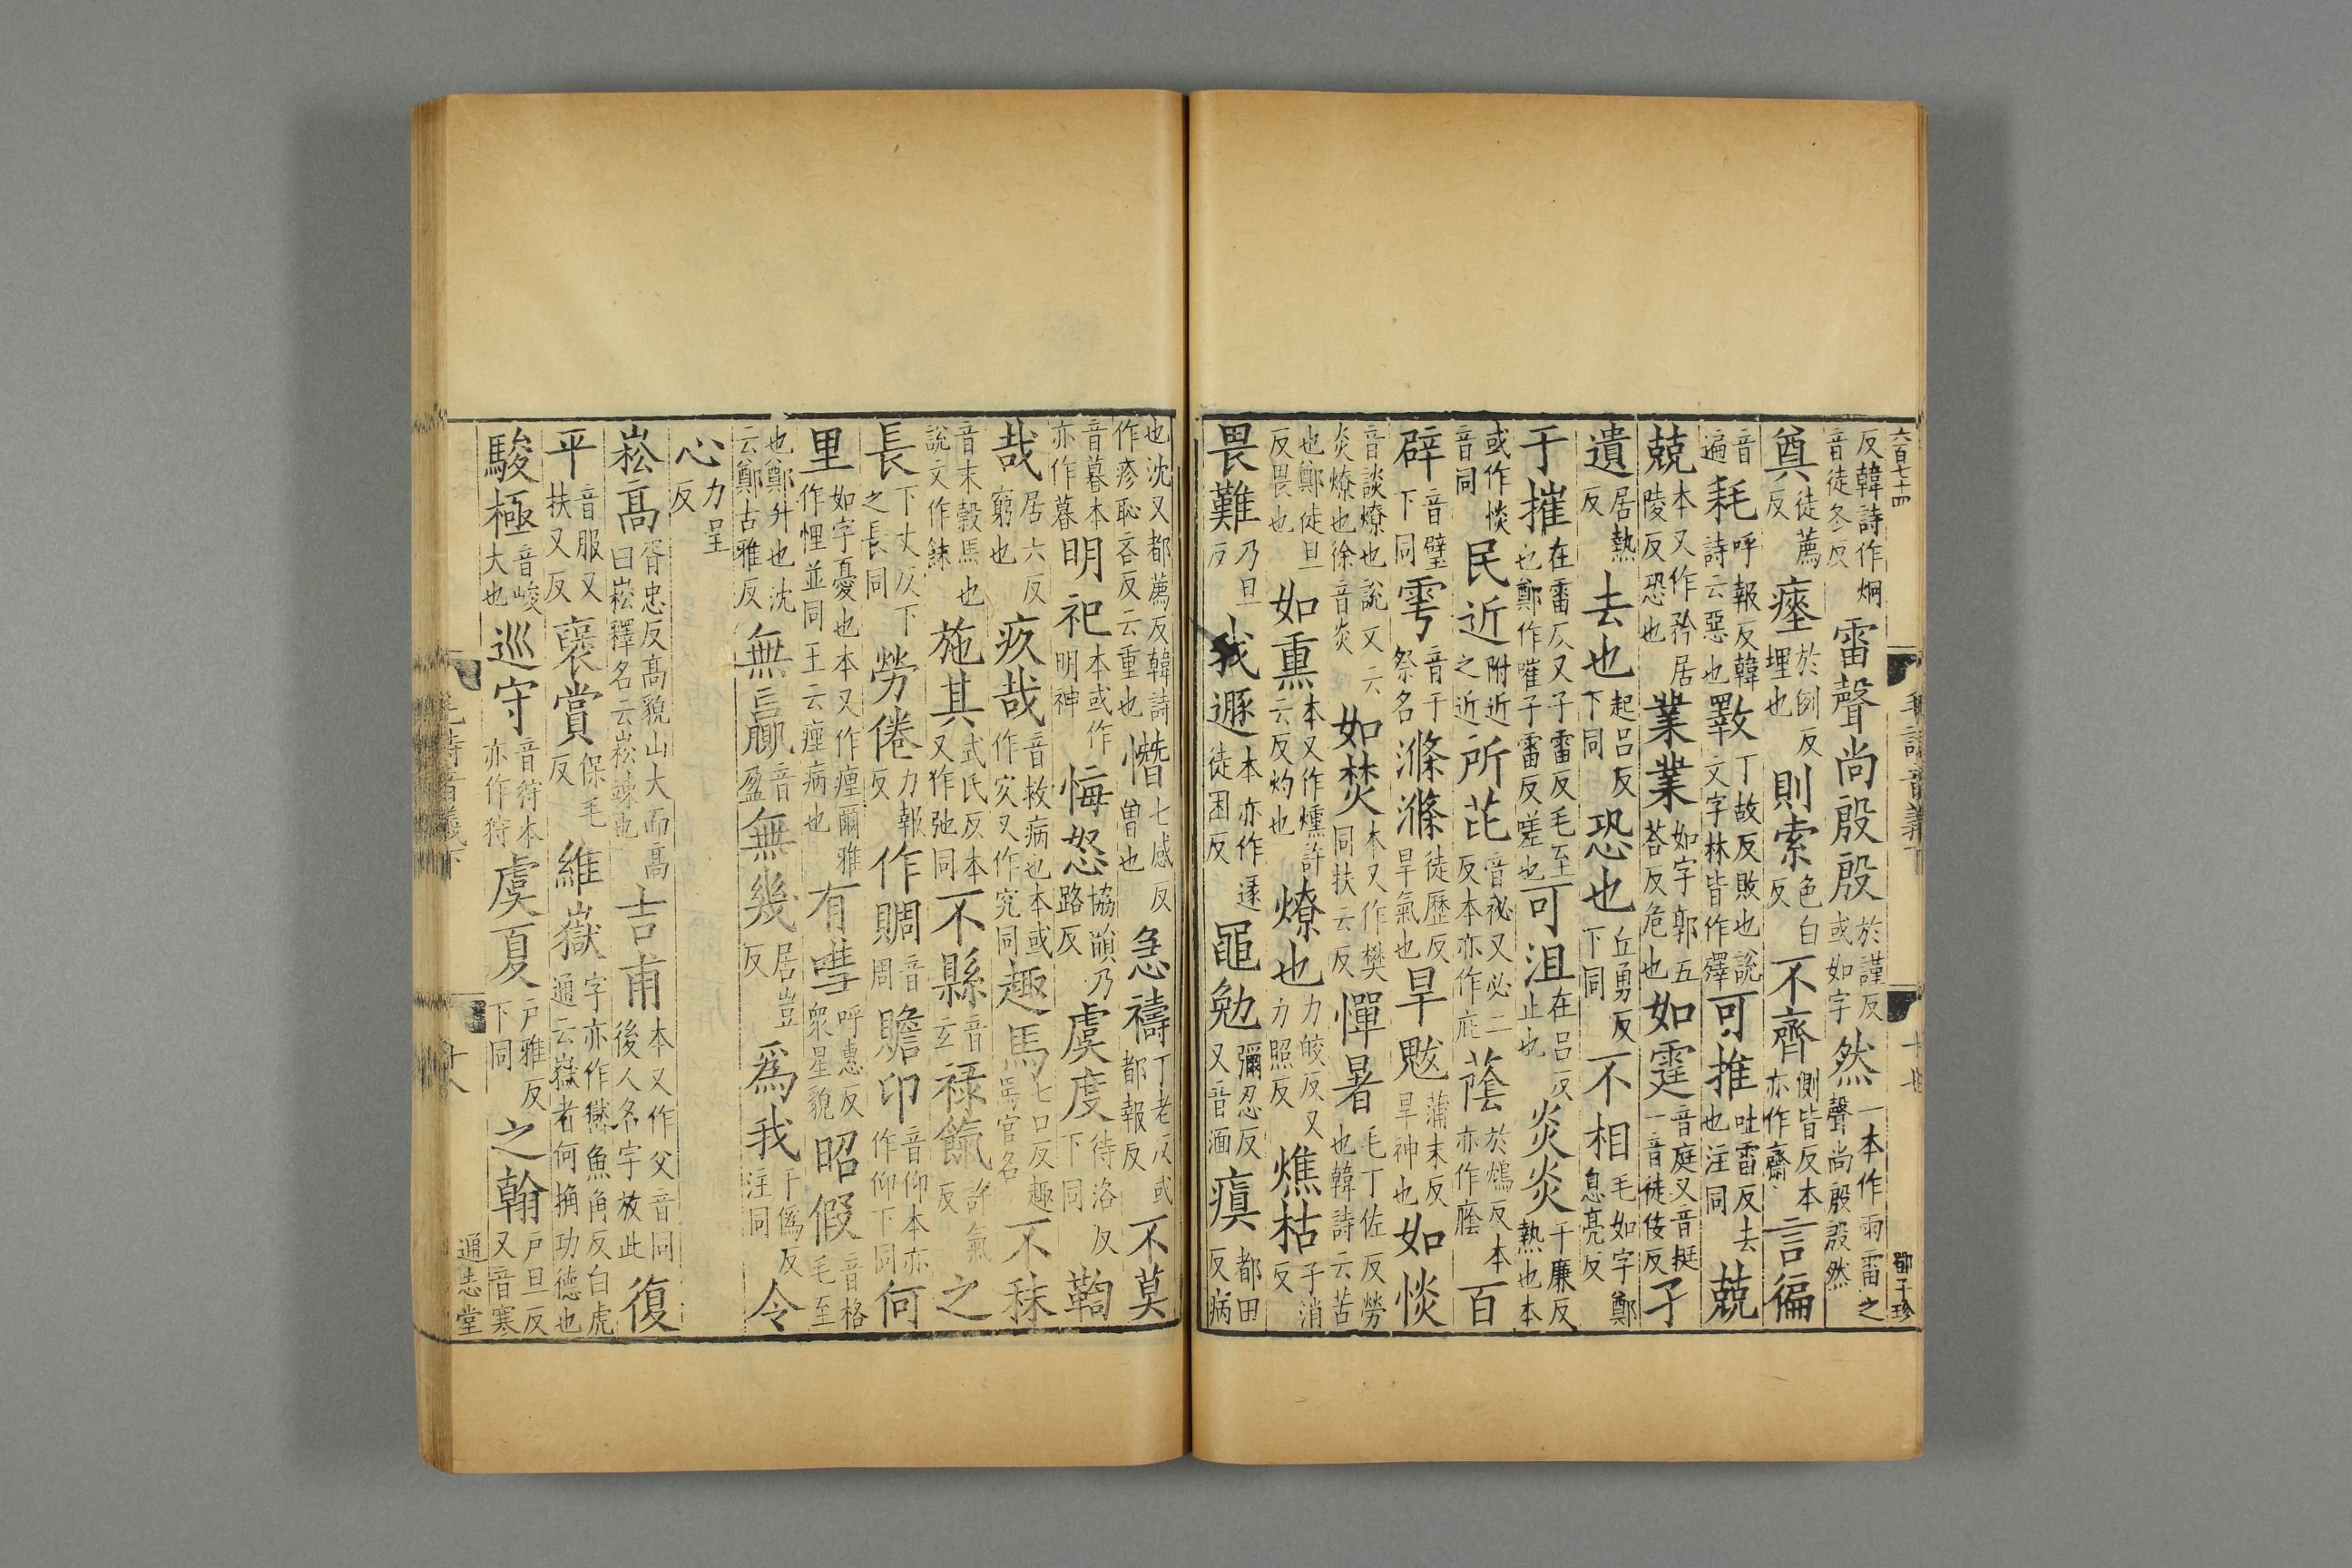 六百七十四
毛詩音義下
十七
鄧子珍
反韓詩作烔音徒冬反雷聲尚殷殷於謹反或如字然一本作雨雷之聲尚殷殷然
奠徒薦反瘞於例反埋也則索色白反不齊側皆反本亦作齋言徧
音遍耗呼報反韓詩云惡也斁丁故反敗也說文字林皆作殬可推吐雷反去也注同兢
兢本又作矜居陵反恐也業業如字郭五荅反危也如霆音庭又音挺一音徒佞反孑
遺居熱反去也起呂反下同恐也丘勇反下同不相毛如字鄭息亮反
于摧在雷反又子雷反毛至也鄭作嗺子雷反嗟也可沮在呂反止也炎炎于廉反熱也本
或作惔音同民近附近之近所芘音祕又必二反本亦作庇蔭於鴆反本亦作廕百
辟音璧下同雩音于祭名滌滌徒歷反旱氣也旱魃蒲末反旱神也如惔
音談燎也說文云炎燎也徐音炎如焚本又作樊同扶云反憚暑毛丁佐反勞也韓詩云苦
也鄭徒旦反畏也如熏本又作燻許云反灼也燎也力皎反又力照反燋枯子消反
畏難乃旦反我遯本亦作遂徒困反黽勉彌忍反又音湎瘨都田反病
也沈又都薦反韓詩作疹恥吝反云重也憯七感反曾也急禱丁老反或都報反不莫
音暮本亦作暮明祀本或作明神悔怒協韻乃路反虞度待洛反下同鞫
哉居六反窮也疚哉音救病也本或作㝌又作究同趣馬七口反趣馬官名不秣
音末穀馬也說文作䬴施其式氏反本又作弛同不縣音玄祿餼許氣反之
長下丈反下之長同勞倦力報反作賙音周贍卬音仰本亦作仰下同何
里如字憂也本又作㾖爾雅作悝並同王云㾖病也有嘒呼惠反眾星貌昭假音格毛至
也鄭升也沈云鄭古雅反無贏音盈無幾居豈反爲我于僞反注同令
心力呈反
崧高胥忠反高貌山大而高曰崧釋名云崧竦也吉甫本又作父音同後人名字放此復
平音服又扶又反襃賞保毛反維嶽字亦作㟧魚角反白虎通云嶽者何捔功德也
駿極音峻大也巡守音狩本亦作狩虞夏戶雅反下同之翰戶旦反又音寒
毛詩音義下
十八
通志堂